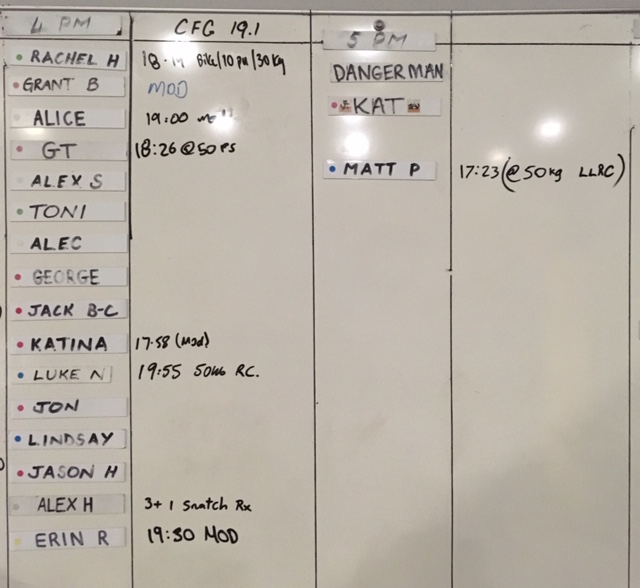 4 PM CFG 19.1 5 PM
RACHEL H Bike/10 pu/30kg
GRANT B MOD
ALICE 19:00
GT 18:26 @ 50
ALEX S
TONI
ALEC
GEORGE
JACK B-C
KATINA 17:58 (Mod)
LUKE N 19:55 50kg RC.
JON
LINDSAY
JASON H
ALEX H 3+1 Snatch Rx
ERIN R 19:30 MOD
DANGERMAN
KAT
MATT P 17:23 (@ 50kg LLRC)